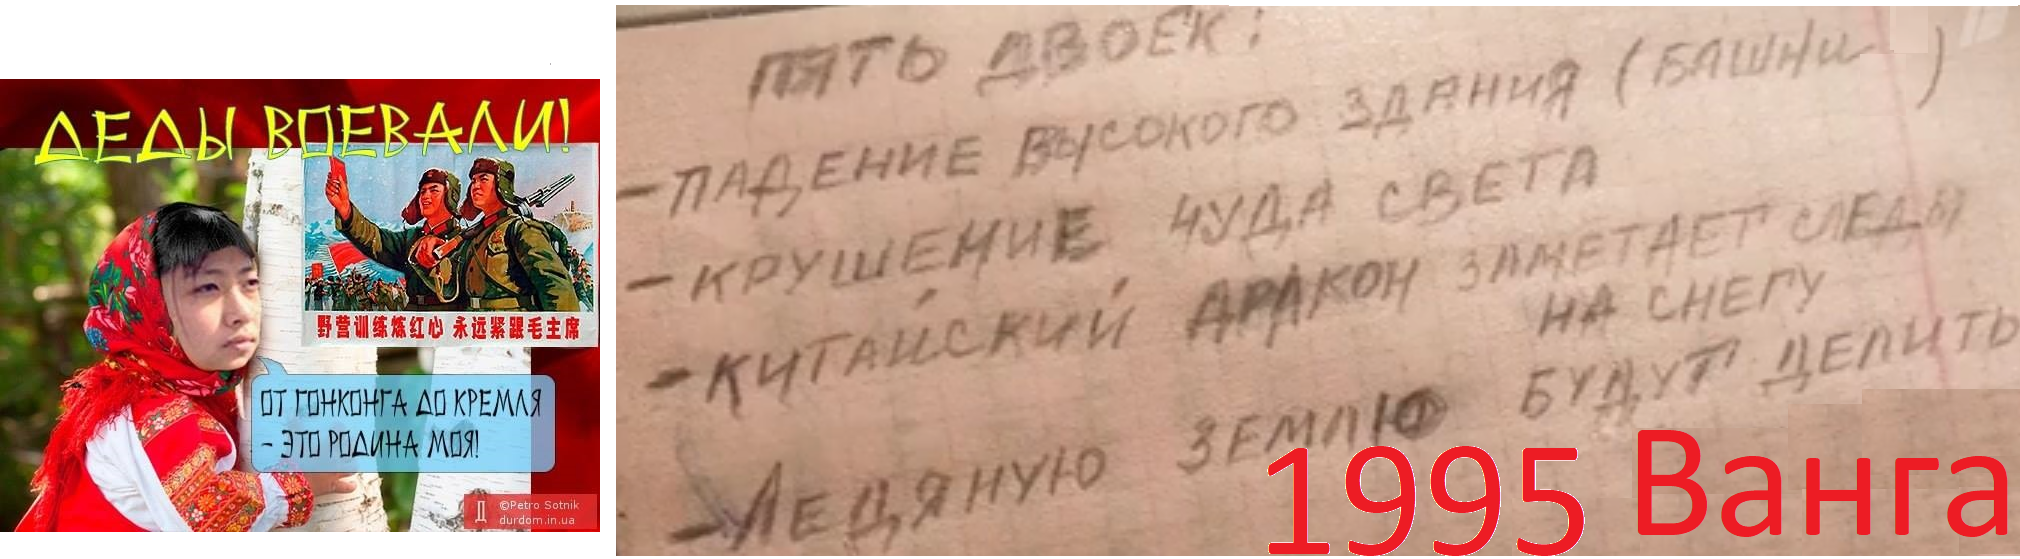 ДЕДЫ ВОЕВАЛИ!
野营训练炼红心 永远紧跟毛主席
ОТ ГОНКОНГА ДО КРЕМЛЯ
- ЭТО РОДИНА МОЯ!
Д
©Petro Sotnik
durdom.in.ua
ПЯТЬ ДВОЕК:
- ПАДЕНИЕ ВЫСОКОГО ЗДАНИЯ (БАШНИ )
- КРУШЕНИЕ ЧУДА СВЕТА
- КИТАЙСКИЙ ДРАКОН ЗАМЕТАЕТ СЛЕДЫ
НА СНЕГУ
- ЛЕДЯНУЮ ЗЕМЛЮ БУДУТ ДЕЛИТЬ
1995 Ванга